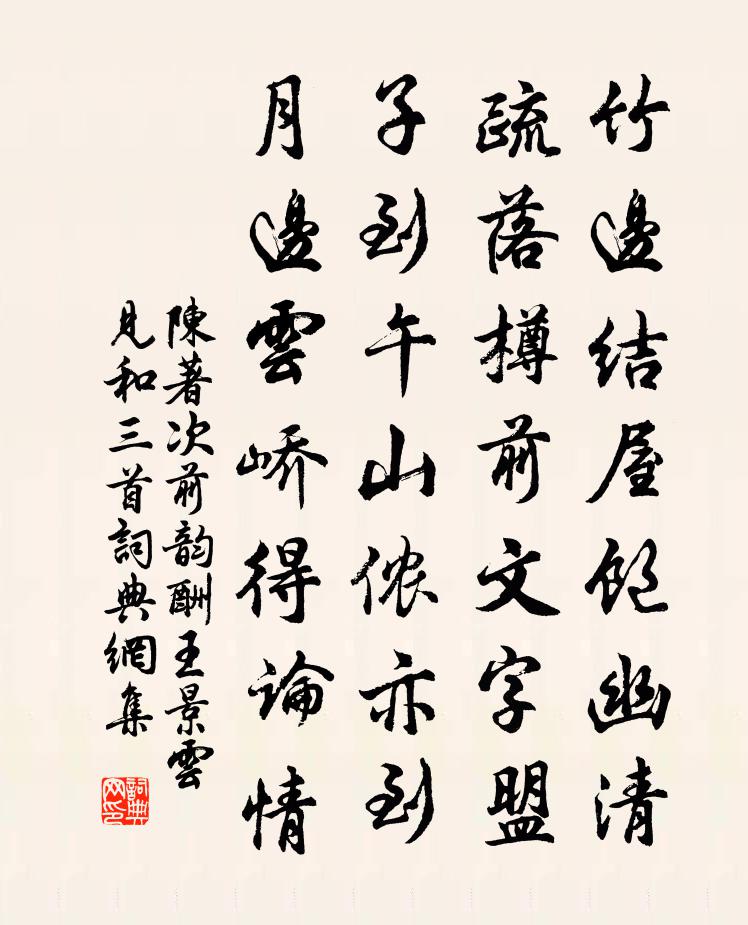 竹邊結屋飽幽清
疏落樽前文字盟
子到午山儂亦到
月邊雲嶠得論情
陳著次前韵酬王景雲
見和三首詞典網集
詞典網印